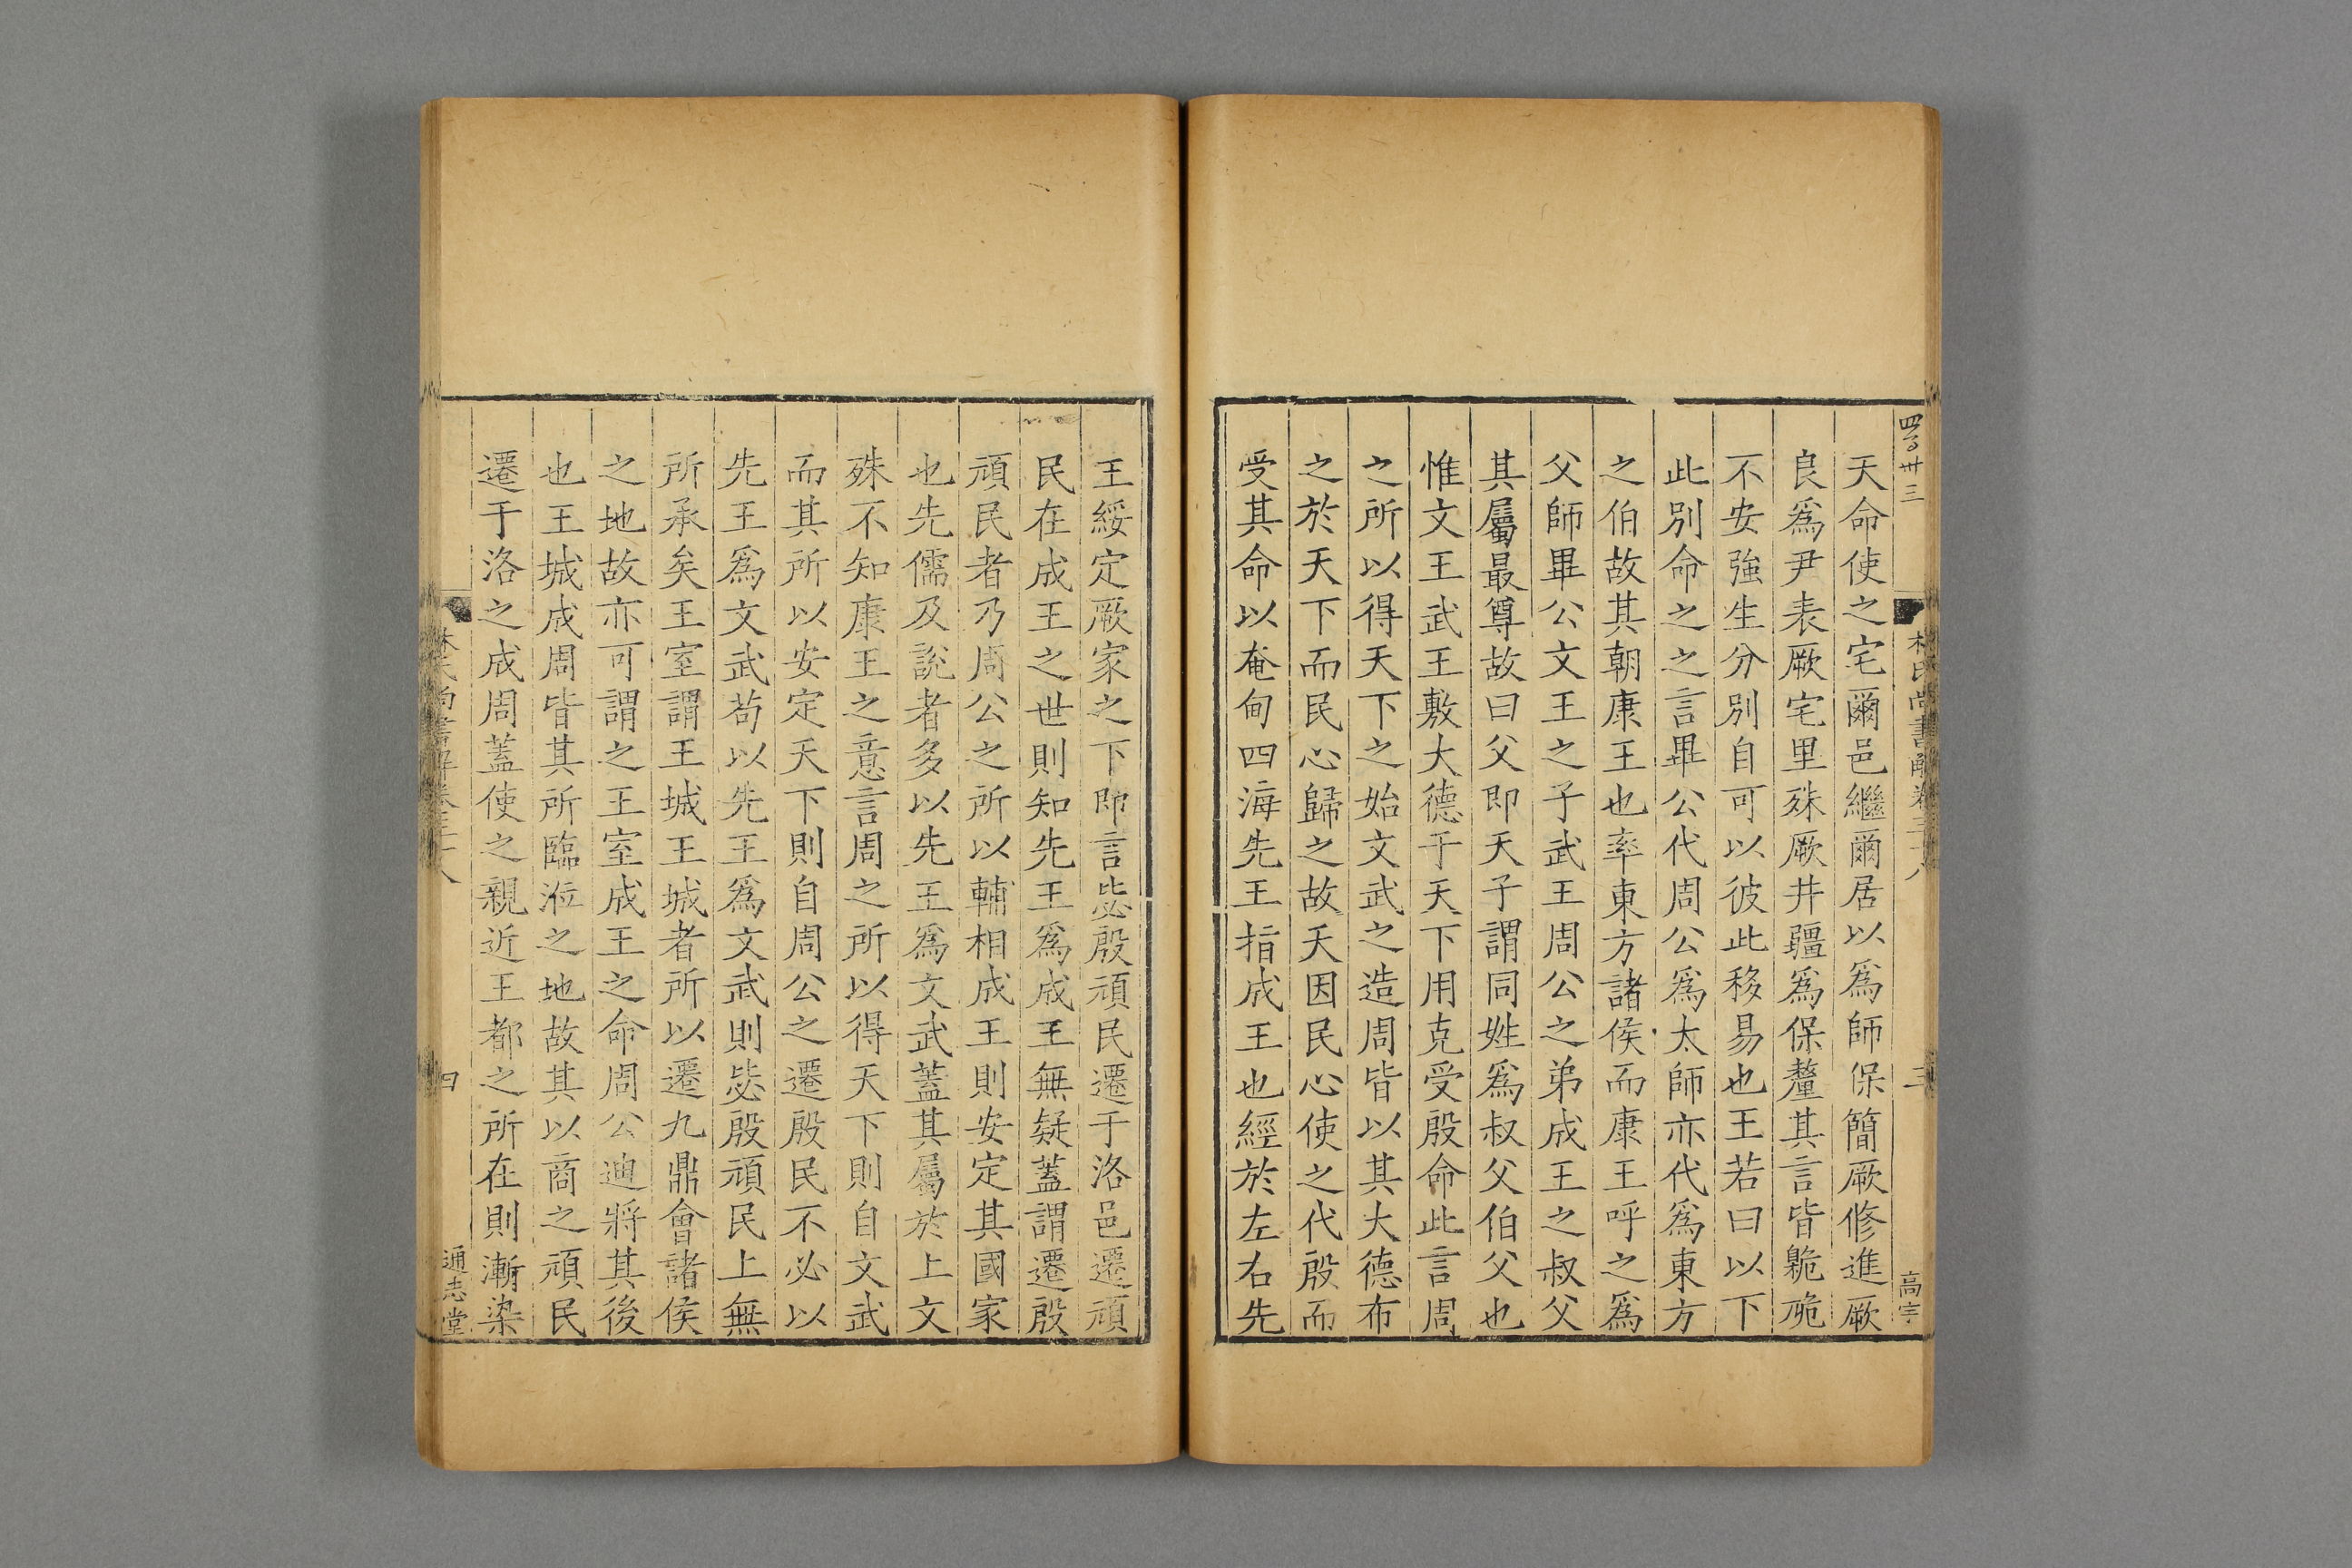 四百卅三
林氏尚書解卷三十八
三
高宇
天命使之宅爾邑繼爾居以爲師保簡厥修進厥
良爲尹表厥宅里殊厥井疆爲保釐其言皆臲卼
不安強生分別自可以彼此移易也王若曰以下
此別命之之言畢公代周公爲太師亦代爲東方
之伯故其朝康王也率東方諸侯而康王呼之爲
父師畢公文王之子武王周公之弟成王之叔父
其屬最尊故曰父即天子謂同姓爲叔父伯父也
惟文王武王敷大德于天下用克受殷命此言周
之所以得天下之始文武之造周皆以其大德布
之於天下而民心歸之故天因民心使之代殷而
受其命以奄甸四海先王指成王也經於左右先
王綏定厥家之下即言毖殷頑民遷于洛邑遷頑
民在成王之世則知先王爲成王無疑蓋謂遷殷
頑民者乃周公之所以輔相成王則安定其國家
也先儒及說者多以先王爲文武蓋其屬於上文
殊不知康王之意言周之所以得天下則自文武
而其所以安定天下則自周公之遷殷民不必以
先王爲文武苟以先王爲文武則毖殷頑民上無
所承矣王室謂王城王城者所以遷九鼎會諸侯
之地故亦可謂之王室成王之命周公迪將其後
也王城成周皆其所臨涖之地故其以商之頑民
遷于洛之成周蓋使之親近王都之所在則漸染
林氏尚書解卷三十八
四
通志堂